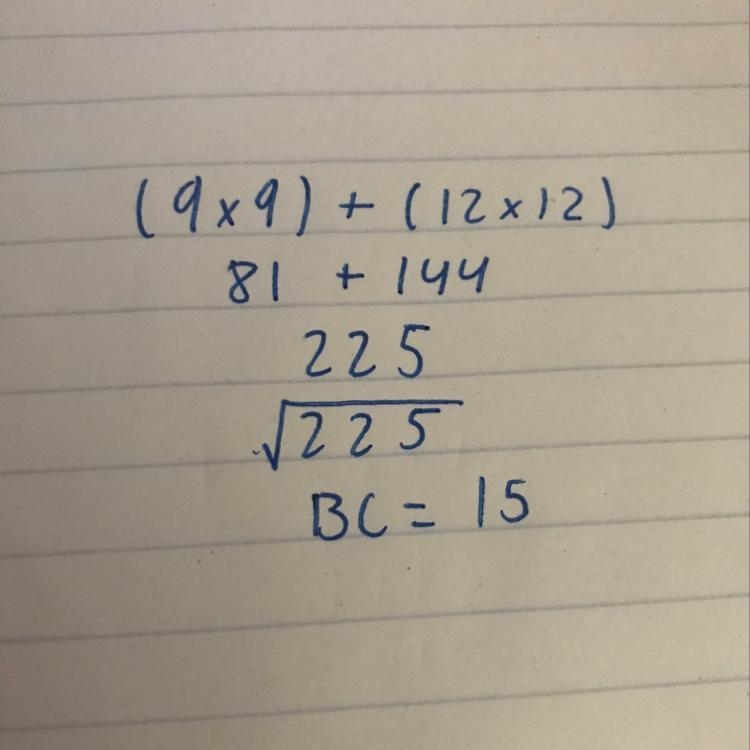 (9×9) + (12×12)
81 + 144
225
√225
BC = 15